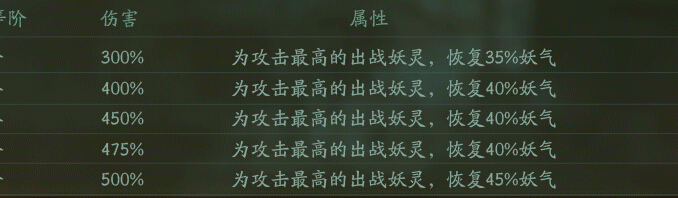 等阶 伤害 属性
300% 为攻击最高的出战妖灵，恢复35%妖气
400% 为攻击最高的出战妖灵，恢复40%妖气
450% 为攻击最高的出战妖灵，恢复40%妖气
475% 为攻击最高的出战妖灵，恢复40%妖气
500% 为攻击最高的出战妖灵，恢复45%妖气